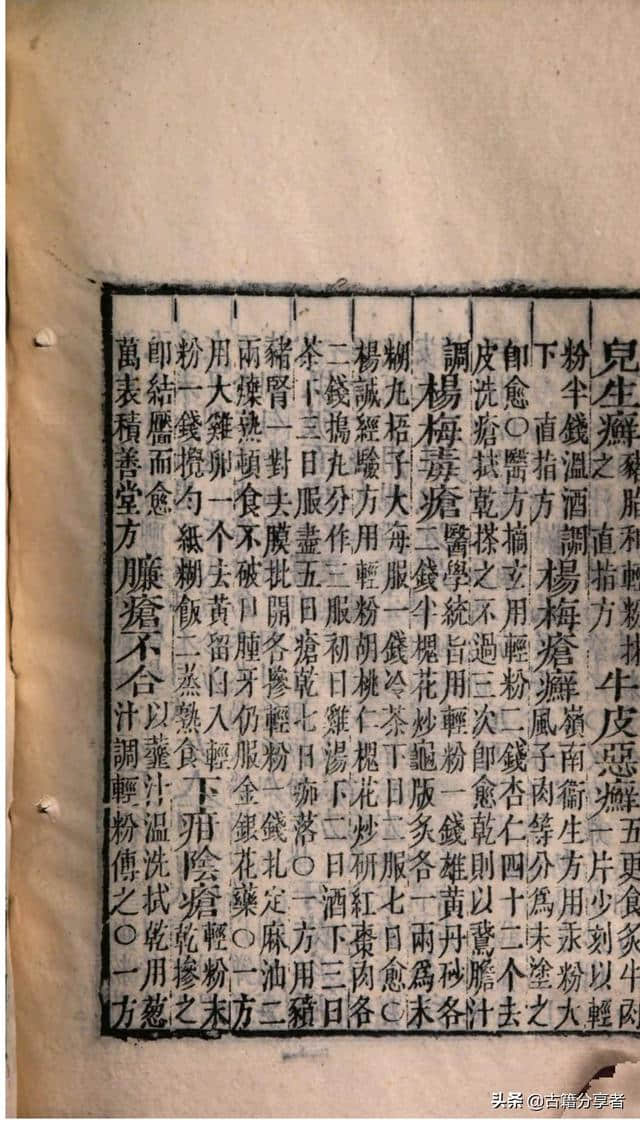 兒生癬 豬脂和輕粉抹之 直指方 牛皮惡癬 五更食炙牛肉一片少刻以輕
粉半錢溫酒調下 直指方 楊梅瘡癬 嶺南衞生方用汞粉大風子肉等分為末塗之
即愈○醫方摘玄用輕粉二錢杏仁四十二个去
皮洗瘡拭乾搽之不過三次即愈乾則以鵞膽汁
調 楊梅毒瘡 醫學統旨用輕粉一錢雄黃丹砂各二錢半槐花炒龜版炙各一兩為末
糊丸梧子大每服一錢冷茶下日二服七日愈○
楊誠經驗方用輕粉胡桃仁槐花炒研紅棗肉各
二錢搗丸分作三服初日雞湯下二日酒下三日
茶下三日服盡五日瘡乾七日痂落○一方用豶
豬腎一對去膜批開各摻輕粉一錢札定麻油二
兩煠熟頓食不破口腫牙仍服金銀花藥○一方
用大雞卵一个去黃留白入輕粉一錢攪勻紙糊飯二蒸熟食 下疳陰瘡 輕粉末乾摻之
即結靨而愈 萬表積善堂方 臁瘡不合 以虀汁溫洗拭乾用葱汁調輕粉傅之○一方
头条 @古籍分享者